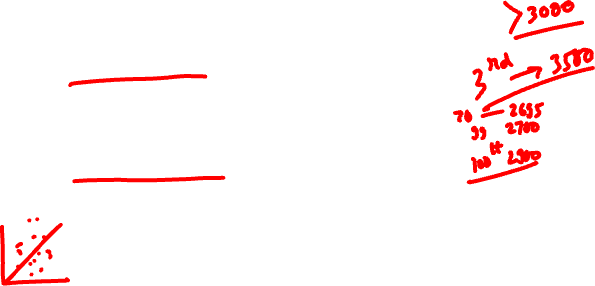 > 3000
3rd → 3500
70 — 2695
99 2700
100th 2900